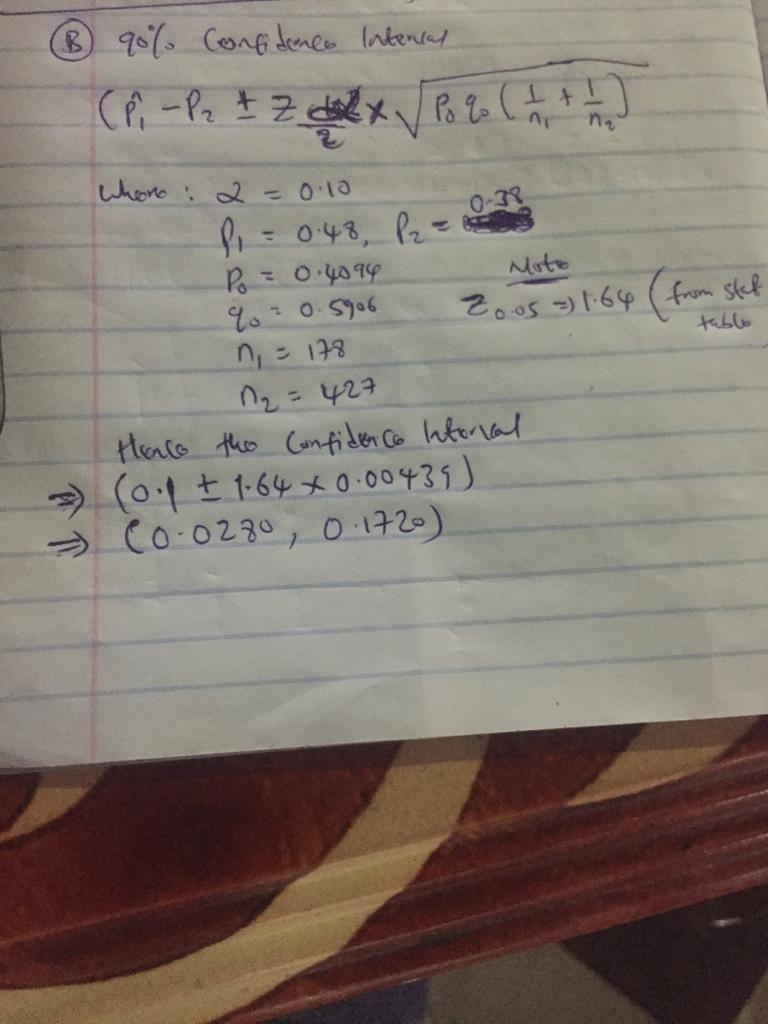 Ⓑ 90% Confidence Interval
(p̂₁ - P₂ ± Z α/2 × √P₀ q₀ (1/n₁ + 1/n₂))
Where : α = 0.10
P₁ = 0.48, P₂ = 0.38
P₀ = 0.4094
q₀ = 0.5906
Note
Z₀.₀₅ ⇒ 1.64 (from stat table
n₁ = 178
n₂ = 427
Hence the Confidence Interval
⇒ (0.1 ± 1.64 × 0.00439)
⇒ (0.0280, 0.1720)